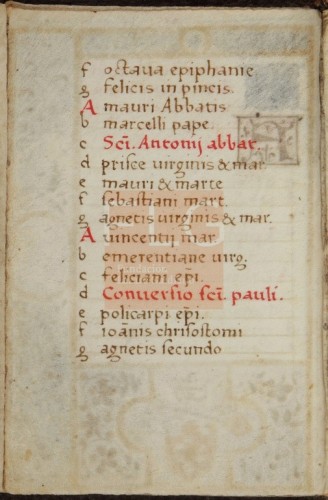 f octaua epiphanie
g felicis in pincis.
A mauri Abbatis
b marcelli pape.
c Sci. Antonij abbat.
d prisce virginis & mar
e mauri & marte
f sebastiani mart.
g agnetis uirginis & mar.
A uincentij mar.
b emerentiane uirg.
c feliciani epi.
d Conuersio sci. pauli.
e policarpi epi.
f ioanis chrisostomi
g agnetis secundo